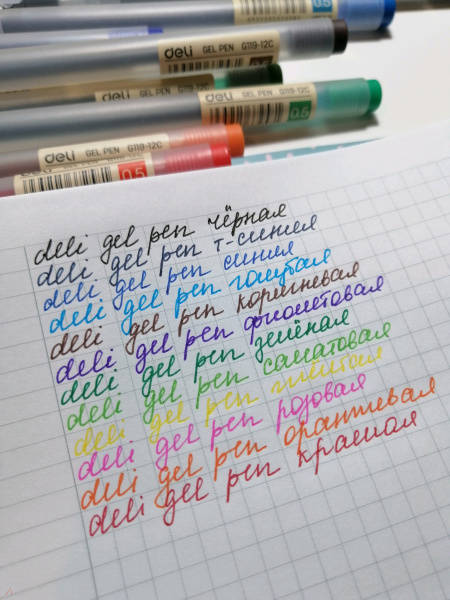 0.5
deli GEL PEN G119-12C
deli GEL PEN G119-12C
deli GEL PEN G119-12C 0.5
deli GEL PEN G119-12C
0.5
deli gel pen чёрная
deli gel pen т-синяя
deli gel pen синяя
deli gel pen голубая
deli gel pen коричневая
deli gel pen фиолетовая
deli gel pen зелёная
deli gel pen салатовая
deli gel pen жёлтая
deli gel pen розовая
deli gel pen оранжевая
deli gel pen красная